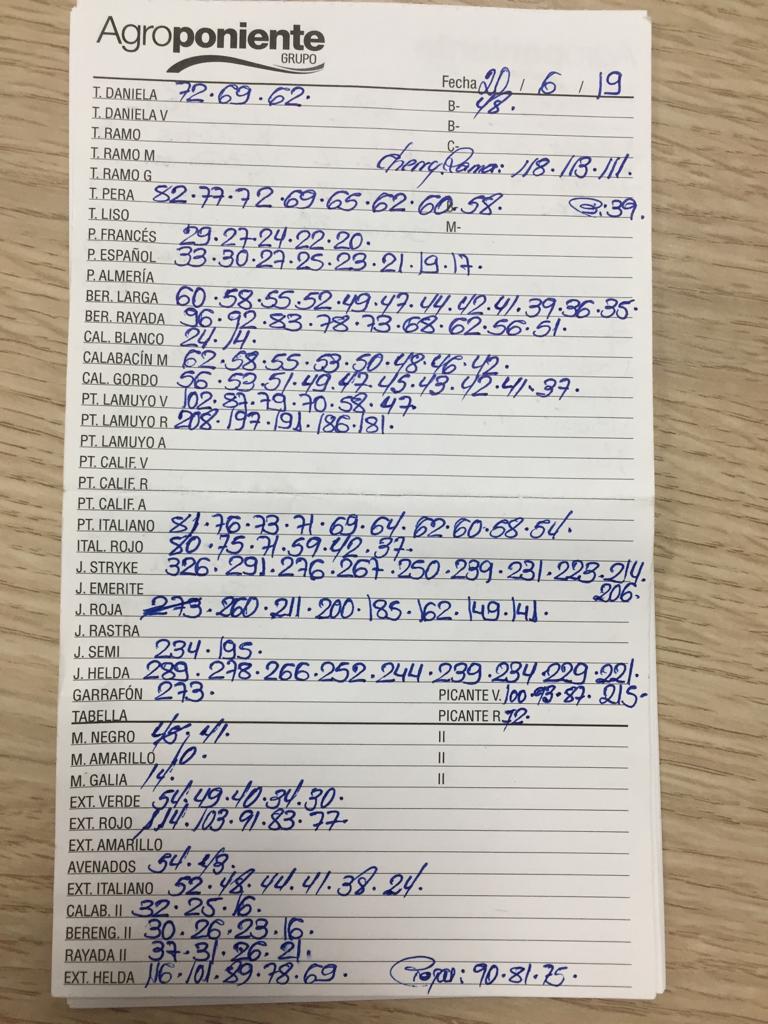 Agroponiente
GRUPO
Fecha 20 / 6 / 19
T. DANIELA 72·69·62. B- 48.
T. DANIELA V B-
T. RAMO C-
T. RAMO M Cherry Rama: 118·113·111.
T. RAMO G
T. PERA 82·77·72·69·65·62·60·58. :39.
T. LISO M-
P. FRANCÉS 29·27·24·22·20.
P. ESPAÑOL 33·30·27·25·23·21·19·17.
P. ALMERÍA
BER. LARGA 60·58·55·52·49·47·44·42·41·39·36·35.
BER. RAYADA 96·92·83·78·73·68·62·56·51.
CAL. BLANCO 24·14.
CALABACÍN M 62·58·55·53·50·48·46·42.
CAL. GORDO 56·53·51·49·47·45·43·42·41·37.
PT. LAMUYO V 102·87·79·70·58·47.
PT. LAMUYO R 208·197·191·186·181.
PT. LAMUYO A
PT. CALIF. V
PT. CALIF. R
PT. CALIF. A
PT. ITALIANO 81·76·73·71·69·64·62·60·58·54.
ITAL. ROJO 80·75·71·59·42·37.
J. STRYKE 326·291·276·267·250·239·231·223·214.
J. EMERITE 206.
J. ROJA 273·260·211·200·185·162·149·141.
J. RASTRA
J. SEMI 234·195.
J. HELDA 289·278·266·252·244·239·234·229·221.
GARRAFÓN 273. PICANTE V. 100·93·87. 215.
TABELLA PICANTE R 72.
M. NEGRO 45·41. II
M. AMARILLO 10. II
M. GALIA 14. II
EXT. VERDE 54·49·40·34·30.
EXT. ROJO 114·103·91·83·77
EXT. AMARILLO
AVENADOS 54·43.
EXT. ITALIANO 52·48·44·41·38·24.
CALAB. II 32·25·16.
BERENG. II 30·26·23·16.
RAYADA II 37·31·26·21.
EXT. HELDA 116·101·89·78·69. : 90·81·75.